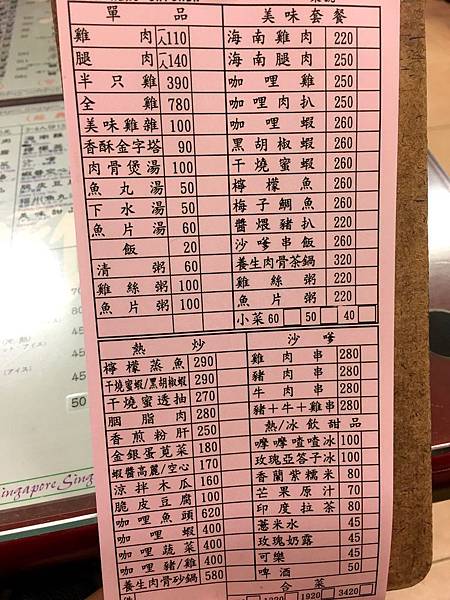 單品
雞肉 一人 110
腿肉 一人 140
半只雞 390
全雞 780
美味雞雜 100
香酥金字塔 90
肉骨煲湯 100
魚丸湯 50
下水湯 50
魚片湯 60
飯 20
清粥 60
雞絲粥 100
魚片粥 100
美味套餐
海南雞肉 220
海南腿肉 250
咖哩雞 250
咖哩肉扒 250
咖哩蝦 260
黑胡椒蝦 260
干燒蜜蝦 260
檸檬魚 260
梅子鯛魚 260
醬煨豬扒 220
沙嗲串飯 260
養生肉骨茶鍋 320
雞絲粥 220
魚片粥 220
小菜 60 50 40
熱炒
檸檬蒸魚 290
干燒蜜蝦/黑胡椒蝦 290
干燒蜜透抽 270
胭脂肉 280
香煎粉肝 250
金銀蛋莧菜 180
蝦醬高麗/空心 170
涼拌木瓜 160
脆皮豆腐 100
咖哩魚頭 620
咖哩蝦 400
咖哩蔬菜 400
咖哩豬/雞 400
養生肉骨砂鍋 580
沙嗲
雞肉串 280
豬肉串 280
牛肉串 280
豬+牛+雞串 280
熱/冰飲甜品
嚤嚤喳喳冰 100
玫瑰亞答子冰 100
香蘭紫糯米 80
芒果原汁 70
印度拉茶 80
薏米水 45
玫瑰奶露 45
可樂 45
啤酒 50
合菜
1920 3420
Singapore Sing